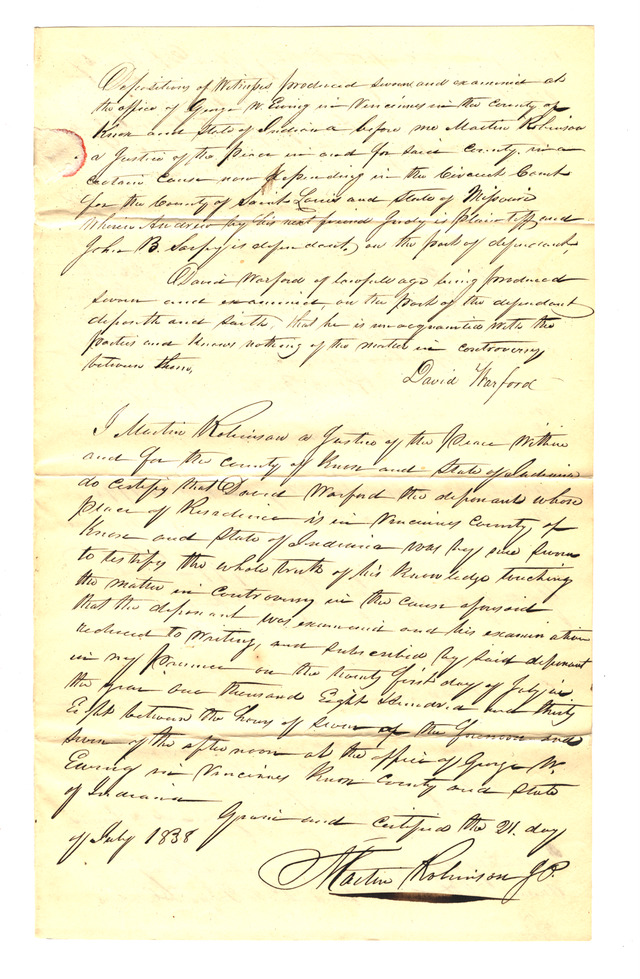 Depositions of Witnesses produced sworn and examined at
the office of George W. Ewing in Vincennes in the county of
Knox and State of Indiana before me Martin Robinson
a Justice of the Peace in and for said county, in a
certain cause now depending in the Circuit Court
for the County of Saint Louis and State of Missouri
wherein Andrew by his next friend Judy is Plaintiff and
John B. Sarpy is defendant, on the part of defendant,
David Warford of lawfull age being produced
sworn and examined, on the part of the defendant
deposeth and saith, that he is unacquainted with the
parties and knows nothing of the matter in controversy
between them,
David Warford
I Martin Robinson a Justice of the Peace Within
and for the county of Knox and State of Indiana
do certify that David Warford the deponant whose
place of Residence is in Vincennes County of
Knox and State of Indiana was by me sworn
to testify the whole truth of his knowledge touching
the matter in controversy in the cause aforesaid
that the deponant was examined and his examination
reduced to writing, and subscribed by said deponant
in my presence on the twenty first day of July in
the year one thousand Eight hundred and thirty
Eight between the hours of seven of the forenoon and
seven of the afternoon at the office of George W.
Ewing in Vincennes Knox County and State
of Indiana
Given and certified the 21. day
of July 1838
Martin Robinson J.P.